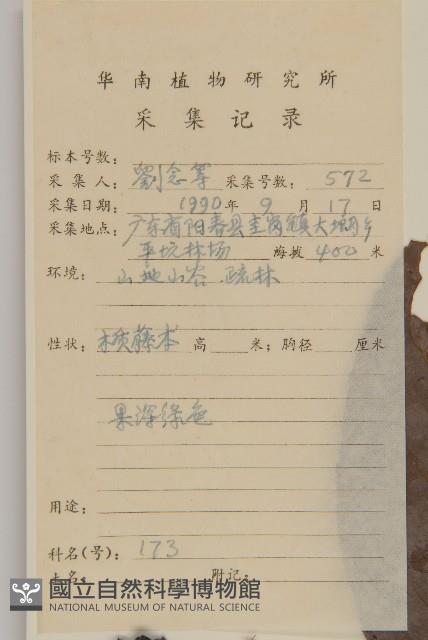 华南植物研究所
采集记录
标本号数：
采集人：劉念等 采集号数：572
采集日期：1990年9月17日
采集地点：广东省阳春县圭岗镇大㙟乡
平坑林场 海拔400米
环境：山地山谷.疏林
性状：木质藤本 高 米；胸径 厘米
果深绿色
用途：
科名(号)：173
土名： 附记：
國立自然科學博物館
NATIONAL MUSEUM OF NATURAL SCIENCE